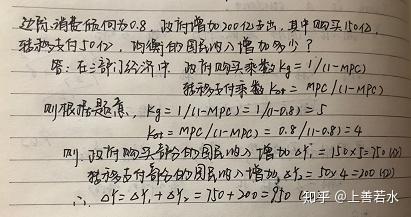 边际消费倾向为0.8，政府增加200亿支出，其中购买150亿，
转移支付50亿，均衡的国民收入增加多少？
答：在三部门经济中 政府购买乘数Kg=1/(1-MPC)
转移支付乘数Ktr=MPC/(1-MPC)
则根据题意，Kg=1/(1-MPC)=1/(1-0.8)=5
Ktr=MPC/(1-MPC)=0.8/(1-0.8)=4
则 政府购买部分的国民收入增加ΔY₁=150×5=750(亿)
转移支付部分的国民收入增加ΔY₂=50×4=200(亿)
∴ ΔY=ΔY₁+ΔY₂=750+200=950(亿)
知乎 @上善若水